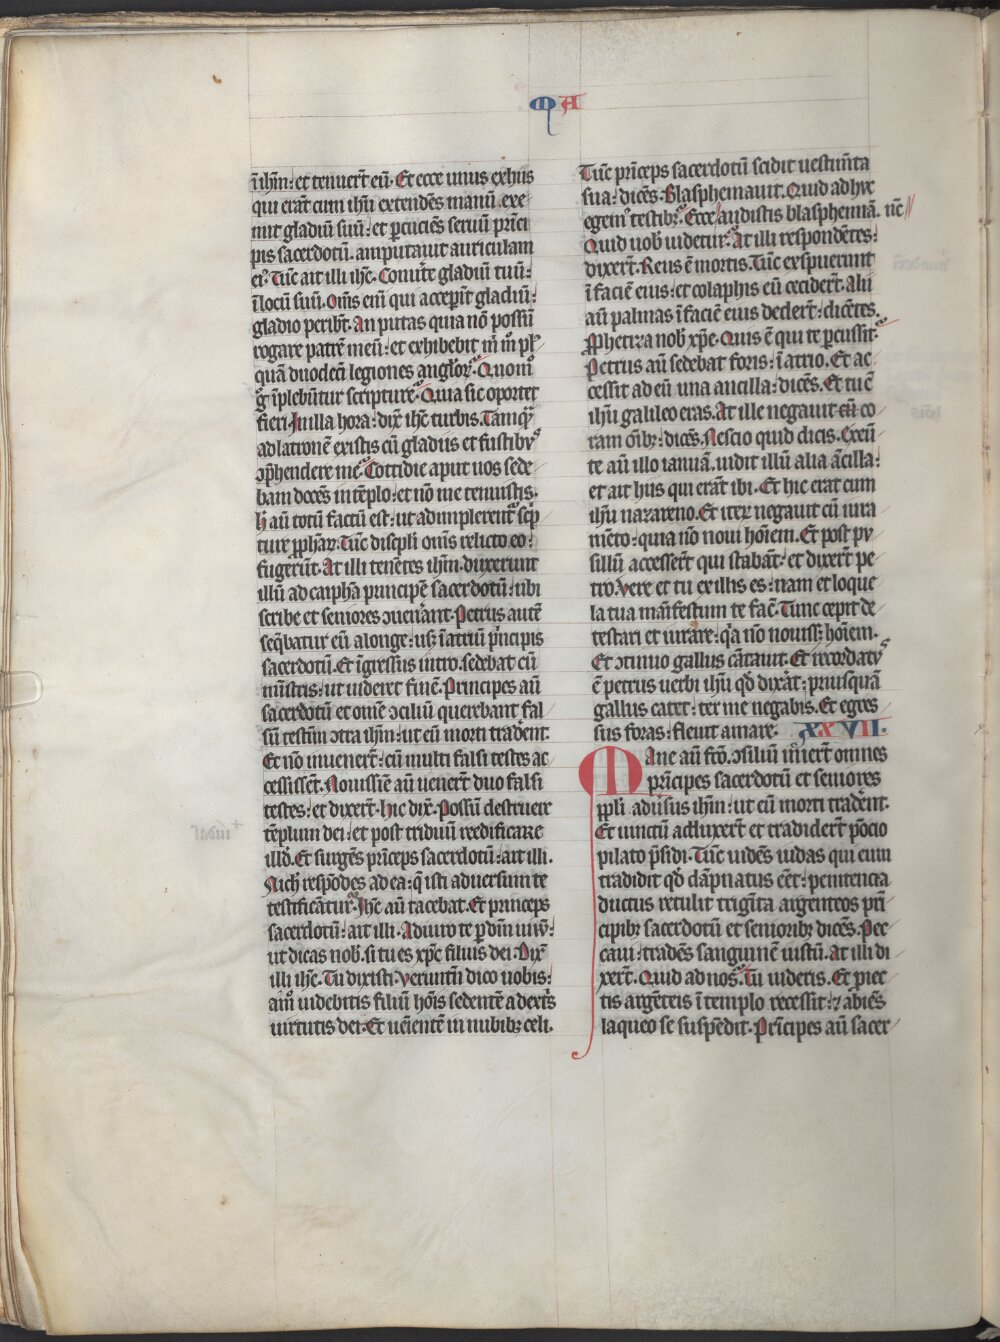 MA
i ihm̄: et tenuerūt eū. Et ecce unus ex hiis
qui erāt cum ihū extendēs manū exe
mit gladiū suū: et ꝑcuciēs seruū prīci
pis sacerdotū. amputauit auriculam
eiꝰ. Tūc ait illi ihc̄. Conuťte gladiū tuū:
ī locū suū. Om̄s enī qui acceperīt gladiū:
gladio peribūt. An putas quia nō possū
rogare patrē meū: et exhibebit m̄ m̊ pl
quā duodecī legiones angl̄oꝝ. Quom̊
g̊ īplebūtur scripture. Quia sic oportet
fieri. In illa hora: dix̄ ihc̄ turbis. Tamq̄
ad latronē existis cū gladiis et fustibꝰ
ↄp̄hendere me. Cottidie aput uos sede
bam docēs in tēplo: et nō me tenuistis.
h̄ aū totū factū est: ut adimplerent̃ sc̄p
ture ꝓph̄aꝝ. Tūc discipl̄i om̄s relicto eo:
fugerūt. At illi tenētes ihm̄. duxerunt
illū ad caiphā principē sacerdotū: ubi
scribe et seniores ↄuenant̄. Petrus autē
seq̄batur eū alonge: usqꝫ ī atriū p̄ncipis
sacerdotū. Et īgressus intro. sedebat cū
mīstris: ut uideret finē. Principes aū
sacerdotū et omē ↄciliū querebant fal
sū testīm ↄtra ihm̄: ut eū morti tradēnt.
Et nō inuenert̄. cū multi falsi testes ac
cessissēt. Nouissīe aū uenert̄ duo falsi
testes: et dixert̄. hic dix̄. Possū destruere
tēplum dei: et post triduū reedificare
illd̄. Et surgēs prīceps sacerdotū: ait illi.
Nich̄ respōdes ad ea: q̄ isti aduersum te
testificātur. Ihc̄ aū tacebat. Et princeps
sacerdotū: ait illi. Adiuro te ꝑ dm̄ uiuū:
ut dicas nob̄. si tu es xp̄c filius dei. Dix̄
illi ihc̄. Tu dixisti. Veruntn̄ dico uobis:
am̊ uidebitis filiū hōis sedentē a dextis
uirtutis dei. Et ueīentē in nubibꝫ celi.
Tūc prīceps sacerdotū scidit uestim̄ta
sua: dicēs. Blasphemauit. Quid adhuc
egemꝰ testibꝫ. Ecce audistis blasphemiā. nc̄
Quid uob̄ uidetur. At illi respondētes:
dixert̄. Reus ē mortis. Tūc exspuerunt
ī faciē eius: et colaphis eū cecidert̄. Alii
aū palmas ī faciē eius dedert̄: dicētes.
Ꝓphetiza nob̄ xp̄e. Quis ē qui te ꝑcussit.
Petrus aū sedebat foris: ī atrio. Et ac
cessit ad eū una ancilla: dicēs. Et tu cū
ihū galileo eras. At ille negauit eū co
ram oībꝫ: dicēs. Nescio quid dicis. Exeū
te aū illo ianuā. uidit illū alia ācilla:
et ait hiis qui erāt ibi. Et hic erat cum
ihū nazareno. Et iteꝝ negauit cū iura
mēto: quia nō noui hōīem. Et post pu
sillū accessert̄ qui stabāt: et dixert̄ pe
tro. Vere et tu ex illis es: nam et loque
la tua māifestum te fac̄. Tunc cepit de
testari et iurare: q̄a nō nouissꝫ hōīem.
Et ↄtinuo gallus cātauit. Et recordatꝰ
ē petrus uerbi ihū qd̄ dixāt: priusquā
gallus cantet: ter me negabis. Et egres
sus foras: fleuit amare. XXVII.
Mane aū fc̄o. ↄsiliū inierr̄t omnes
prīcipes sacerdotū et seniores
ppl̄i adūsus ihm̄: ut eū morti tradēnt.
Et iunctū adduxert̄ et tradidert̄ pōcio
pilato p̄sidi. Tūc uidēs iudas qui eum
tradidit qd̄ dāpnatus eēt: penitencia
ductus retulit trigīta argenteos prī
cipibꝫ sacerdotū et senioribꝫ dicēs. Pec
caui: tradēs sanguinē iustū. At illi di
xert̄. Quid ad nos. Tu uideris. Et proiec
tis argēteis ī templo recessit: ⁊ abiēs
laqueo se suspēdit. Prīcipes aū sacer